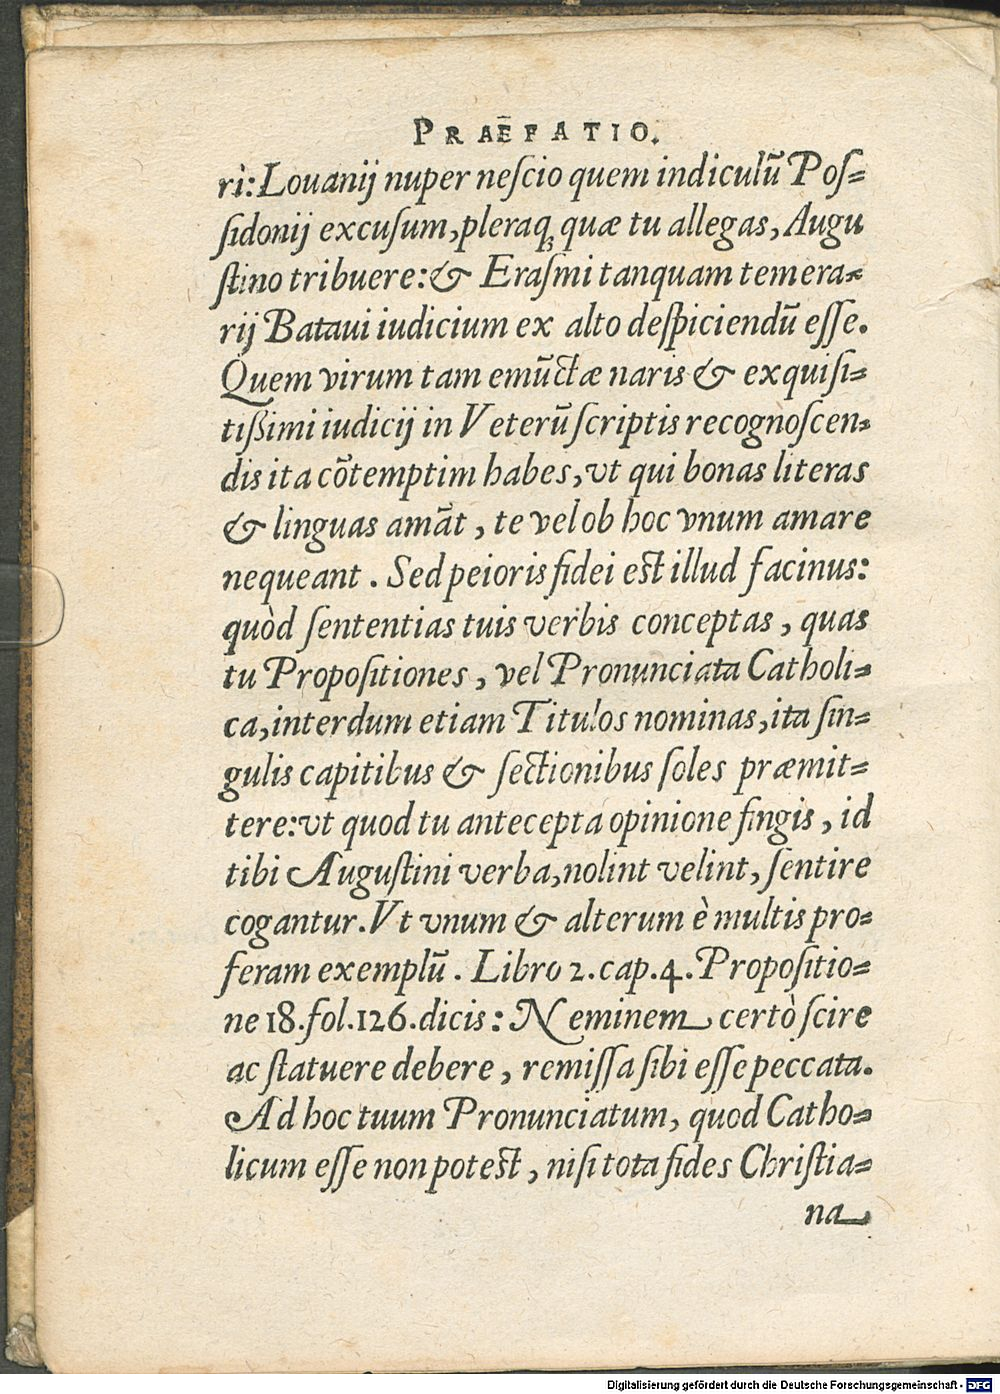 PRAEFATIO.
rì: Louanij nuper neſcio quem indiculũ Poſ⸗
ſidonij excuſum, pleraqꝫ quæ tu allegas, Augu
ſtino tribuere: & Eraſmi tanquam temera⸗
rij Bataui iudicium ex alto deſpiciendũ eſſe.
Quem virum tam emũctæ naris & exquiſi⸗
tißimi iudicij in Veterũ ſcriptis recognoſcen⸗
dis ita cõtemptim habes, vt qui bonas literas
& linguas amãt, te vel ob hoc vnum amare
nequeant. Sed peioris fidei eſt illud facinus:
quòd ſententias tuis verbis conceptas, quas
tu Propoſitiones, vel Pronunciata Catholi⸗
ca, interdum etiam Titulos nominas, ita ſin⸗
gulis capitibus & ſectionibus ſoles præmit⸗
tere: vt quod tu antecepta opinione fingis, id
tibi Auguſtini verba, nolint velint, ſentire
cogantur. Vt vnum & alterum è multis pro⸗
feram exemplũ. Libro 2. cap. 4. Propoſitio⸗
ne 18. fol. 126. dicis: Neminem certò ſcire
ac ſtatuere debere, remiſſa ſibi eſſe peccata.
Ad hoc tuum Pronunciatum, quod Catho⸗
licum eſſe non poteſt, niſi tota fides Chriſtia⸗
na
Digitalisierung gefördert durch die Deutsche Forschungsgemeinschaft - DFG